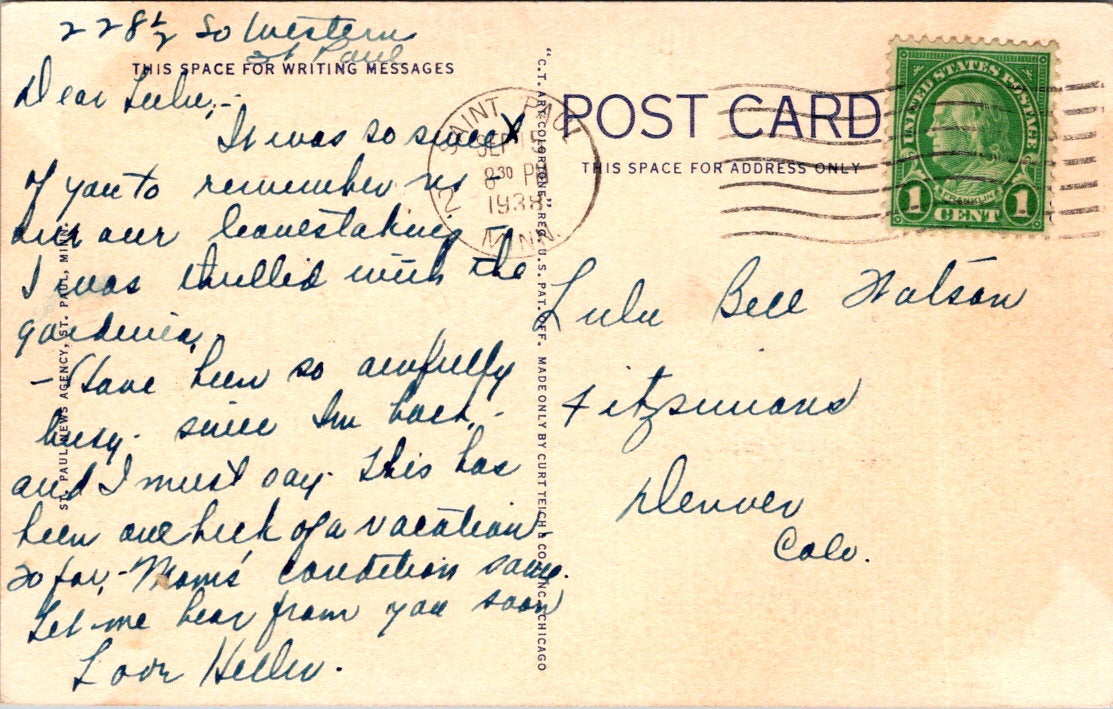 228½ So Western
St Paul
THIS SPACE FOR WRITING MESSAGES
Dear Lulu,-
It was so sweet
of you to remember us -
our leavestaking -
I was thrilled with the
gardenia.
- Have been so awfully
busy - since I'm back, -
and I must say this has
been one heck of a vacation
so far, - Mom's condition same.
Let me hear from you soon
Love Helen.
ST. PAUL NEWS AGENCY, ST. PAUL, MINN.
"C.T. ART-COLORTONE" REG. U.S. PAT. OFF. MADE ONLY BY CURT TEICH & CO., INC., CHICAGO
POST CARD
THIS SPACE FOR ADDRESS ONLY
SAINT PAUL
SEP 15
8 30 PM
1938
2 MINN.
UNITED STATES POSTAGE
FRANKLIN
1 CENT 1
Lulu Bell Watson
Fitzsimons
Denver
Colo.